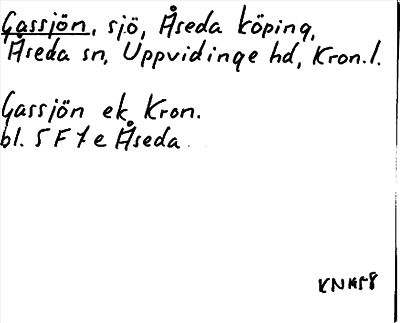 Gassjön, sjö, Åseda köping,
Åseda sn, Uppvidinge hd, Kron.l.
Gassjön ek. Kron.
bl. 5 F 7 e Åseda